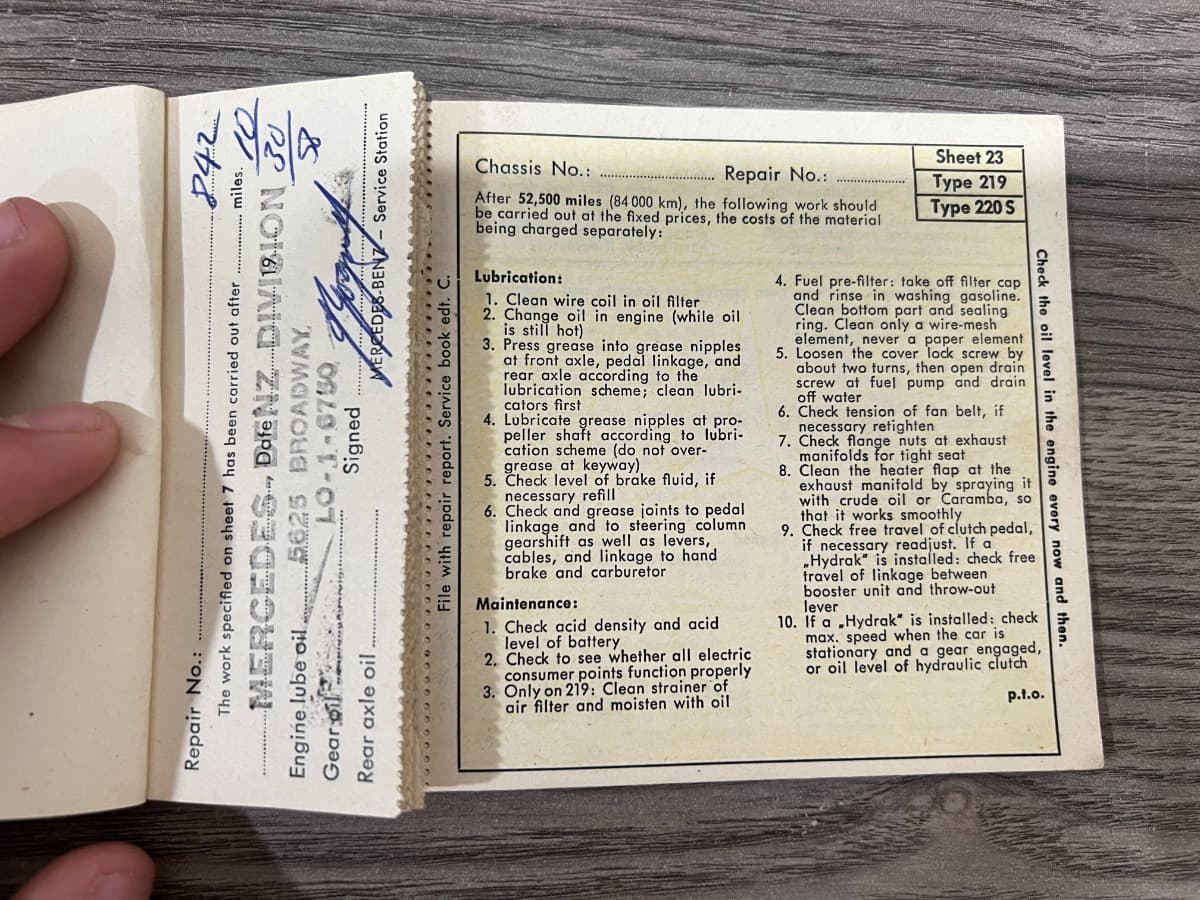 Repair No.: 842
The work specified on sheet 7 has been carried out after miles.
MERCEDES-BENZ DIVISION
Date 19 10/30/58
5625 BROADWAY
Engine lube oil
LO-1-6750
Gear oil
Signed
Rear axle oil
MERCEDES-BENZ – Service Station
File with repair report. Service book edt. C.
Chassis No.: Repair No.:
Sheet 23
Type 219
Type 220 S
After 52,500 miles (84 000 km), the following work should
be carried out at the fixed prices, the costs of the material
being charged separately:
Lubrication:
1. Clean wire coil in oil filter
2. Change oil in engine (while oil
is still hot)
3. Press grease into grease nipples
at front axle, pedal linkage, and
rear axle according to the
lubrication scheme; clean lubri-
cators first
4. Lubricate grease nipples at pro-
peller shaft according to lubri-
cation scheme (do not over-
grease at keyway)
5. Check level of brake fluid, if
necessary refill
6. Check and grease joints to pedal
linkage and to steering column
gearshift as well as levers,
cables, and linkage to hand
brake and carburetor
Maintenance:
1. Check acid density and acid
level of battery
2. Check to see whether all electric
consumer points function properly
3. Only on 219: Clean strainer of
air filter and moisten with oil
4. Fuel pre-filter: take off filter cap
and rinse in washing gasoline.
Clean bottom part and sealing
ring. Clean only a wire-mesh
element, never a paper element
5. Loosen the cover lock screw by
about two turns, then open drain
screw at fuel pump and drain
off water
6. Check tension of fan belt, if
necessary retighten
7. Check flange nuts at exhaust
manifolds for tight seat
8. Clean the heater flap at the
exhaust manifold by spraying it
with crude oil or Caramba, so
that it works smoothly
9. Check free travel of clutch pedal,
if necessary readjust. If a
„Hydrak“ is installed: check free
travel of linkage between
booster unit and throw-out
lever
10. If a „Hydrak“ is installed: check
max. speed when the car is
stationary and a gear engaged,
or oil level of hydraulic clutch
p.t.o.
Check the oil level in the engine every now and then.